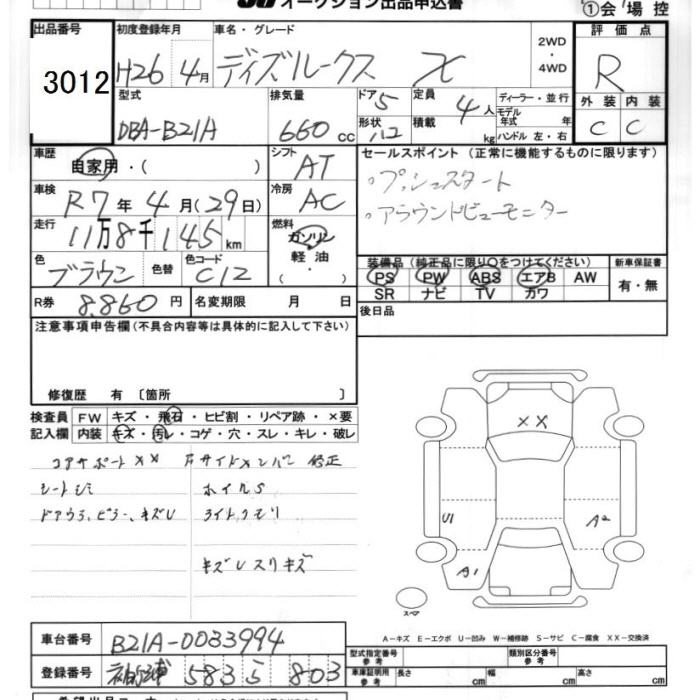 オークション出品申込書
①会場控
出品番号 初度登録年月 車名・グレード 評価点
3012 H26 4月 ディズルークス X 2WD ・ 4WD R
型式 排気量 ドア 5 定員 4人 ディーラー・並行 外装 内装
DBA-B21A 660cc 形状 積載 kg モデル年式 年式 ハンドル 左・右 C C
車歴 自家用・( ) シフト AT セールスポイント (正常に機能するものに限ります)
車検 R7年4月(29日) 冷房 AC 。プッシュスタート
走行 11万8千145km 燃料 ガソリン 軽油 ・( ) 。アラウンドビューモニター
色 ブラウン 色替 色コード C12 装備品 (純正品に限り○をつけてください) 新車保証書
PS PW ABS エアB AW 有・無
SR ナビ TV カワ
R券 8.860円 名変期限 月 日 後日品
注意事項申告欄 (不具合内容等は具体的に記入して下さい)
修復歴 有 〔箇所 〕
検査員 FW キズ・飛石・ヒビ割・リペア跡・×要
記入欄 内装 キズ・汚レ・コゲ・穴・スレ・キレ・破レ
コアサポートXX 右サイドメンバー 修正
シートシミ ホイルS
ライトクモリ
キズUスリキズ
XX
U1 A2
A1
スペア
A－キズ E－エクボ U－凹み W－補修跡 S－サビ C－腐食 XX－交換済
車台番号 B21A-0033994
登録番号 583 803
型式指定番号 参考 類別区分番号 参考
車庫証明用 参考 長さ cm 幅 cm 高さ cm